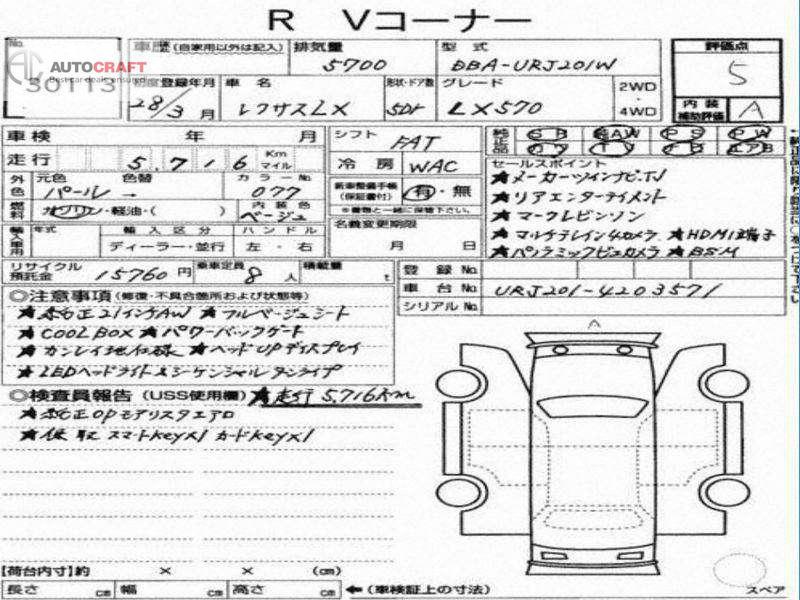 R Vコーナー
No.
AUTOCRAFT
30113
車歴 (自家用以外は記入) 排気量 型式 評価点
5700 DBA-URJ201W 5
初度登録年月 車名 形状・ドア数 グレード 2WD
28/3月 レクサスLX 5Dr LX570 4WD
内装補助評価 A
車検 年 月 シフト FAT
純正品 SR AW PS PW
TV エアB
走行 5,716 Km マイル 冷房 WAC
セールスポイント
外色 元色 色替 カラーNo. 新車整備手帳(保証書付) 有・無
パール → 077 ※書類と一緒に保管下さい。
★メーカーツインナビTV
燃料 ガソリン・軽油・( ) 内装色 ベージュ 名義変更期限
★リアエンターテイメント
輸入車用 年式 輸入区分 ハンドル
ディーラー・並行 左・右 月 日
★マークレビンソン
★マルチテレイン4カメラ ★HDMI端子
★パノラミックビュカメラ ★BSM
リサイクル預託金 15760円 乗車定員 8人 積載量 t 登録No.
車台No. URJ201-4203571
シリアルNo.
◎注意事項 (修復・不具合箇所および状態等)
★純正21インチAW ★フルベージュシート
★COOLBOX ★パワーバックゲート
★カンレイ地仕様 ★ヘッドUPディスプレイ
★LEDヘッドライト&シーケンシャルタンライプ
◎検査員報告 (USS使用欄) ★走行5,716Km
★純正OPモデリスタエアロ
★後取 スマートkey×1 カードkey×1
A
【荷台内寸】約 × × (cm)
長さ cm 幅 cm 高さ cm ←(車検証上の寸法) スペア